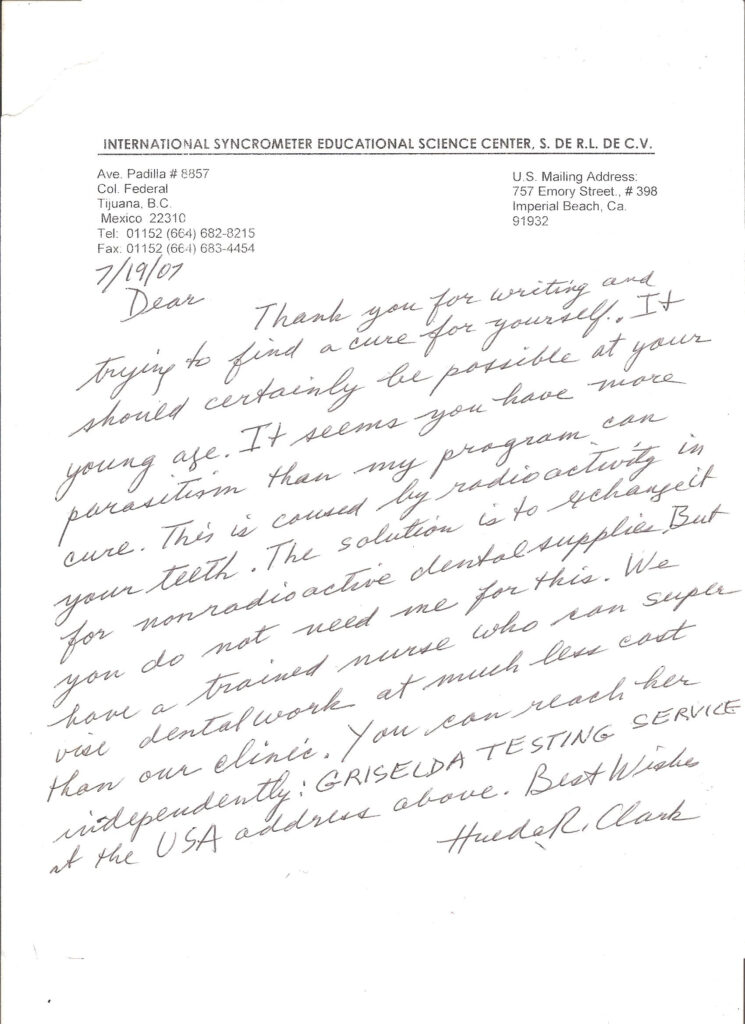 INTERNATIONAL SYNCROMETER EDUCATIONAL SCIENCE CENTER, S. DE R.L. DE C.V.
Ave. Padilla # 8857
Col. Federal
Tijuana, B.C.
Mexico 22310
Tel: 01152 (664) 682-8215
Fax: 01152 (664) 683-4454
U.S. Mailing Address:
757 Emory Street., # 398
Imperial Beach, Ca.
91932
7/19/07
Dear Thank you for writing and
trying to find a cure for yourself. It
should certainly be possible at your
young age. It seems you have more
parasitism than my program can
cure. This is caused by radioactivity in
your teeth. The solution is to exchange it
for nonradioactive dental supplies. But
you do not need me for this. We
have a trained nurse who can super
vise dentalwork at much less cost
than our clinic. You can reach her
independently: GRISELDA TESTING SERVICE
at the USA address above. Best Wishes
Hulda R. Clark